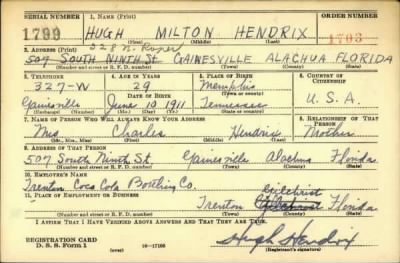 SERIAL NUMBER 1. NAME (Print) ORDER NUMBER
1799 HUGH MILTON HENDRIX 1703
(First) (Middle) (Last)
2. ADDRESS (Print) 228 N.
507 SOUTH NINTH St. GAINESVILLE ALACHUA FLORIDA
(Number and street or R. F. D. number) (Town) (County) (State)
3. TELEPHONE 4. AGE IN YEARS 5. PLACE OF BIRTH 6. COUNTRY OF CITIZENSHIP
327-W 29 Memphis
DATE OF BIRTH (Town or county)
Gainesville June 10 1911 Tennessee U. S. A.
(Exchange) (Number) (Mo.) (Day) (Yr.) (State or country)
7. NAME OF PERSON WHO WILL ALWAYS KNOW YOUR ADDRESS 8. RELATIONSHIP OF THAT PERSON
Mrs Charles Hendrix Mother
(Mr., Mrs., Miss) (First) (Middle) (Last)
9. ADDRESS OF THAT PERSON
507 South Ninth St. Gainesville Alachua Florida
(Number and street or R. F. D. number) (Town) (County) (State)
10. EMPLOYER'S NAME
Trenton Coca Cola Bottling Co.
11. PLACE OF EMPLOYMENT OR BUSINESS Gilchrist
Trenton Gilchrist Florida
(Number and street or R. F. D. number) (Town) (County) (State)
I AFFIRM THAT I HAVE VERIFIED ABOVE ANSWERS AND THAT THEY ARE TRUE.
REGISTRATION CARD
D. S. S. Form 1 (over) 16-17105 Hugh Hendrix
(Registrant's signature)